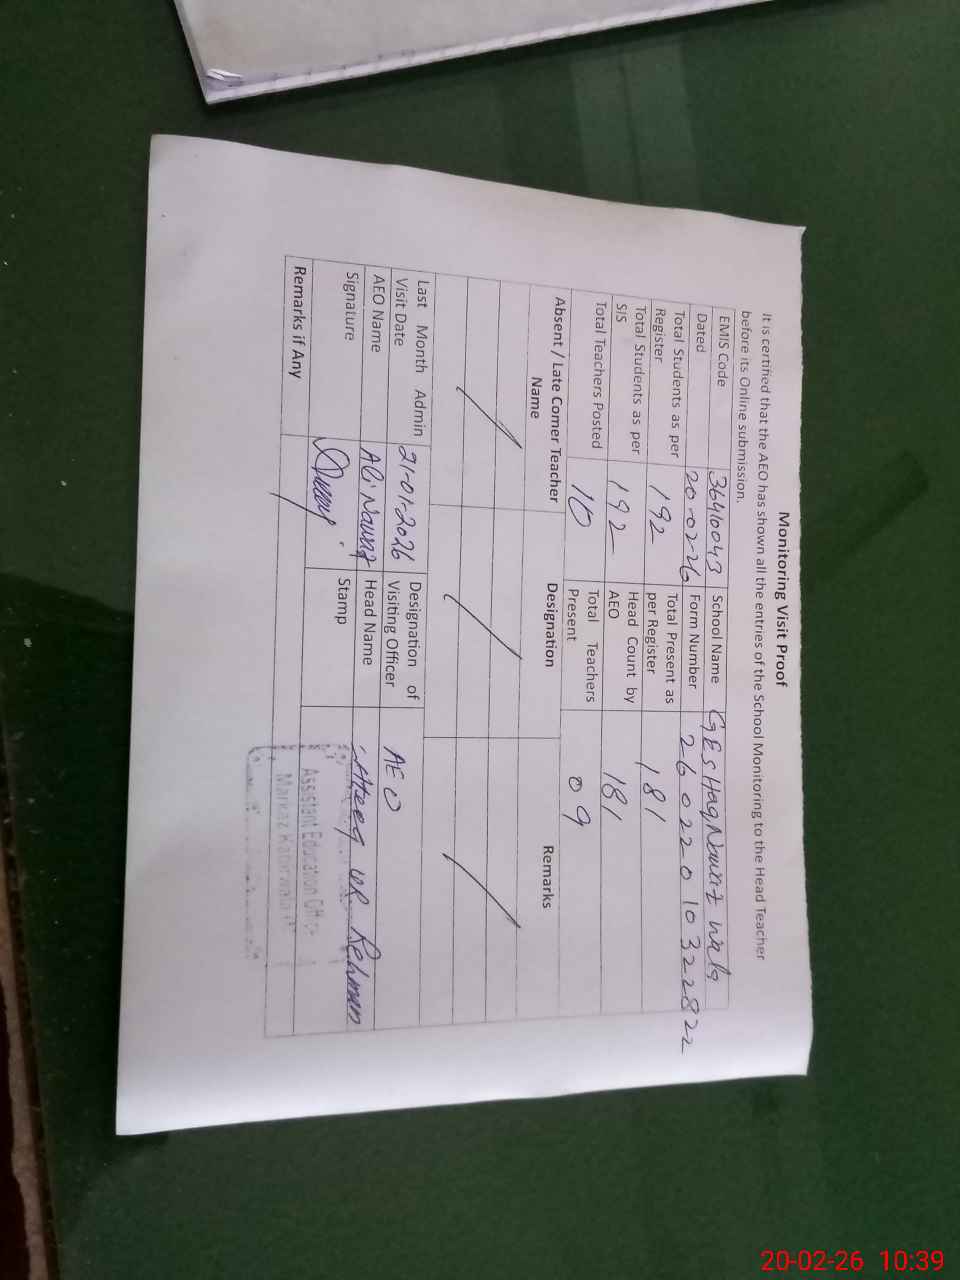 Monitoring Visit Proof
It is certified that the AEO has shown all the entries of the School Monitoring to the Head Teacher
before its Online submission.
EMIS Code 36410043 School Name GES Haq Nawaz wala
Dated 20-02-26 Form Number 26022010322822
Total Students as per Register 192 Total Present as per Register 181
Total Students as per SIS 192 Head Count by AEO 181
Total Teachers Posted 10 Total Teachers Present 09
Absent / Late Comer Teacher Name Designation Remarks
Last Month Admin Visit Date 21-01-2026 Designation of Visiting Officer AEO
AEO Name Ali Nawaz Head Name Atteeq ur Rehman
Signature Stamp
Assistant Education Officer
Markaz Kabirwala
Remarks if Any
20-02-26 10:39